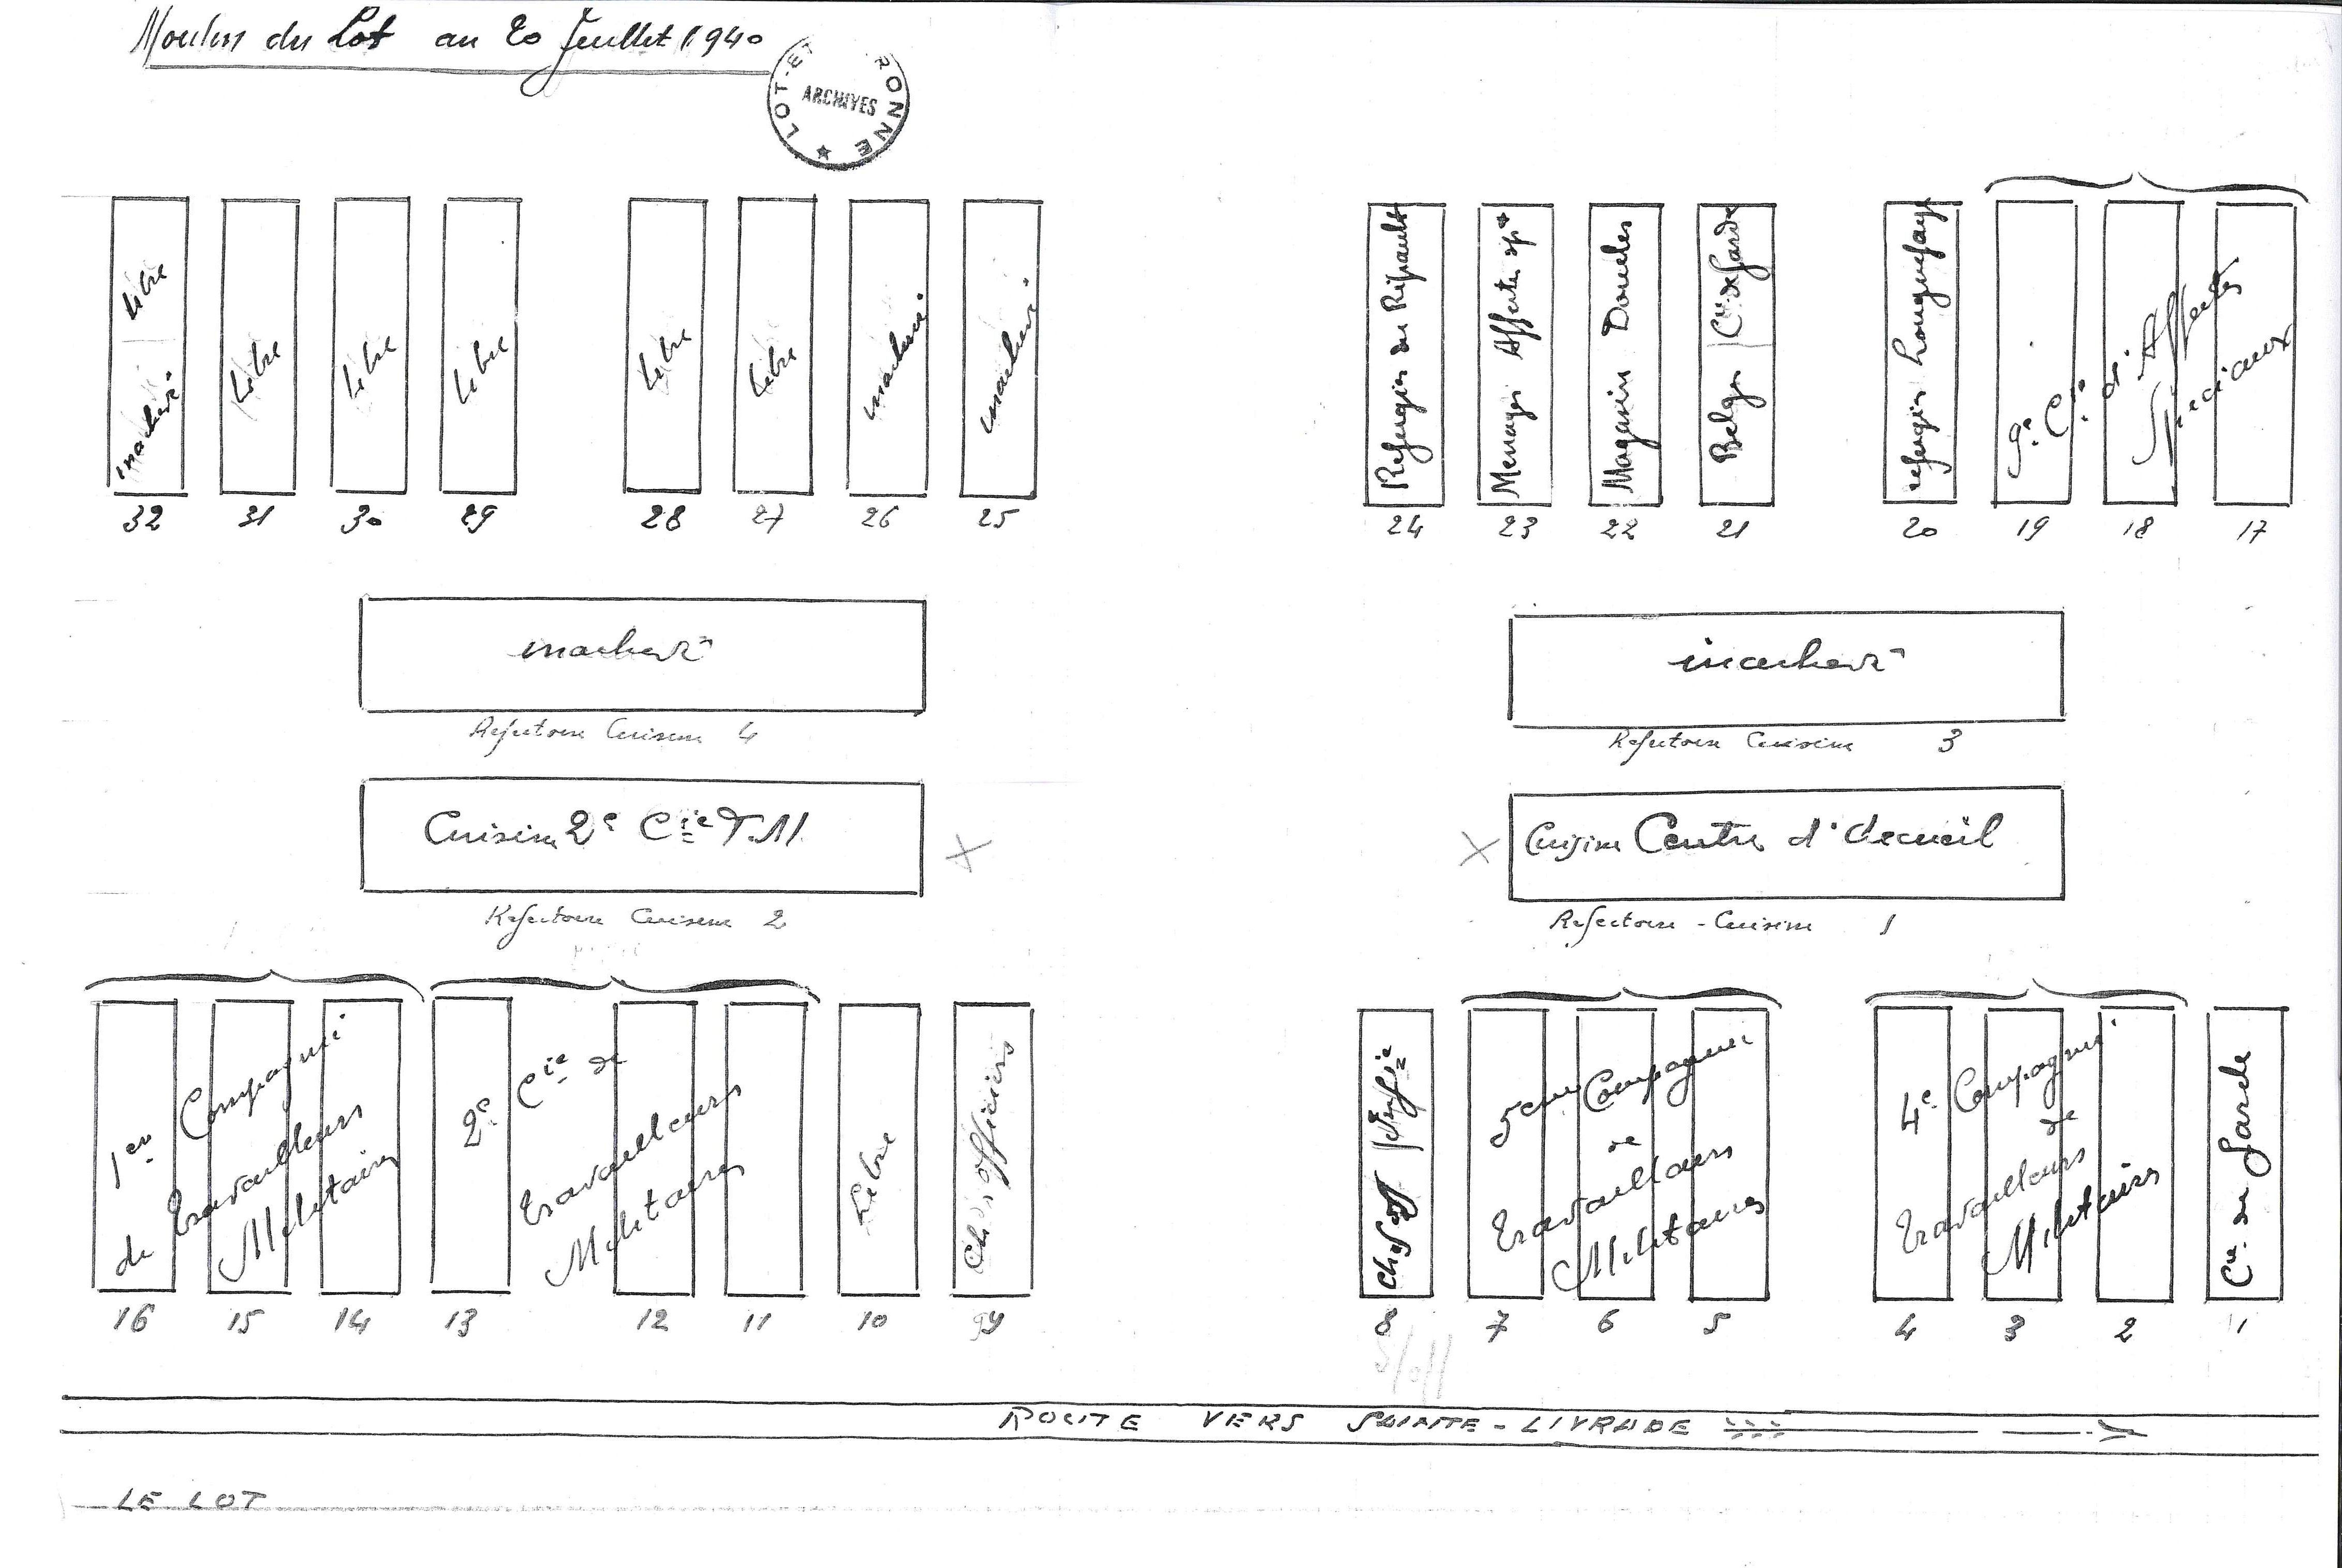 Moulin du Lot au 20 Juillet 1940
LOT-ET
RONNE
ARCHIVES
inachevé
Libre
Libre
Libre
Libre
Libre
Libre
inachevé
inachevé
Refugies du Ripault
Menages Affectés sp
Magasin Douches
Belges Cie de Garde
refugies
9e Cie d'Affectés
Speciaux
32 31 30 29 28 27 26 25
24 23 22 21 20 19 18 17
inachevé
Refectoire Cuisine 4
inachevé
Refectoire Cuisine 3
Cuisine 2e Cie T.M.
X
Refectoire Cuisine 2
X
Cuisine Centre d'Accueil
Refectoire - Cuisine 1
1ere Compagnie
de Travailleurs
Militaires
2e Cie de
Travailleurs
Militaires
Libre
Ch. s/officiers
Infie
5eme Compagnie
de
Travailleurs
Militaires
4e Compagnie
de
Travailleurs
Militaires
Cie de Garde
16 15 14 13 12 11 10 9
8 7 6 5 4 3 2 1
S/off
ROUTE VERS SAINTE-LIVRADE
LE LOT